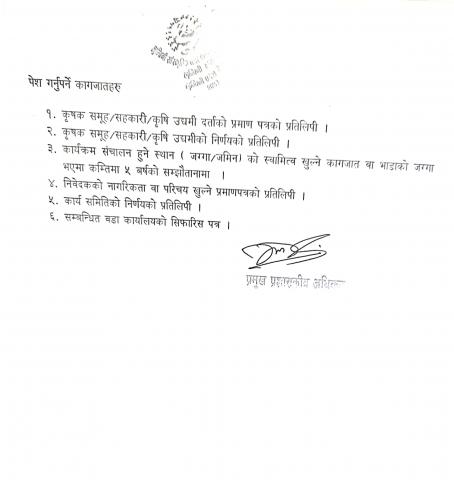 पेश गर्नुपर्ने कागजातहरु
१. कृषक समूह/सहकारी/कृषि उद्यमी दर्ताको प्रमाण पत्रको प्रतिलिपी ।
२. कृषक समूह/सहकारी/कृषि उद्यमीको निर्णयको प्रतिलिपी ।
३. कार्यक्रम संचालन हुने स्थान ( जग्गा/जमिन) को स्वामित्व खुल्ने कागजात वा भाडाको जग्गा
भएमा कम्तिमा ५ बर्षको सम्झौतानामा ।
४. निवेदकको नागरिकता वा परिचय खुल्ने प्रमाणपत्रको प्रतिलिपी ।
५. कार्य समितिको निर्णयको प्रतिलिपी ।
६. सम्बन्धित वडा कार्यालयको सिफारिस पत्र ।
प्रमुख प्रशासकीय अधिकृत